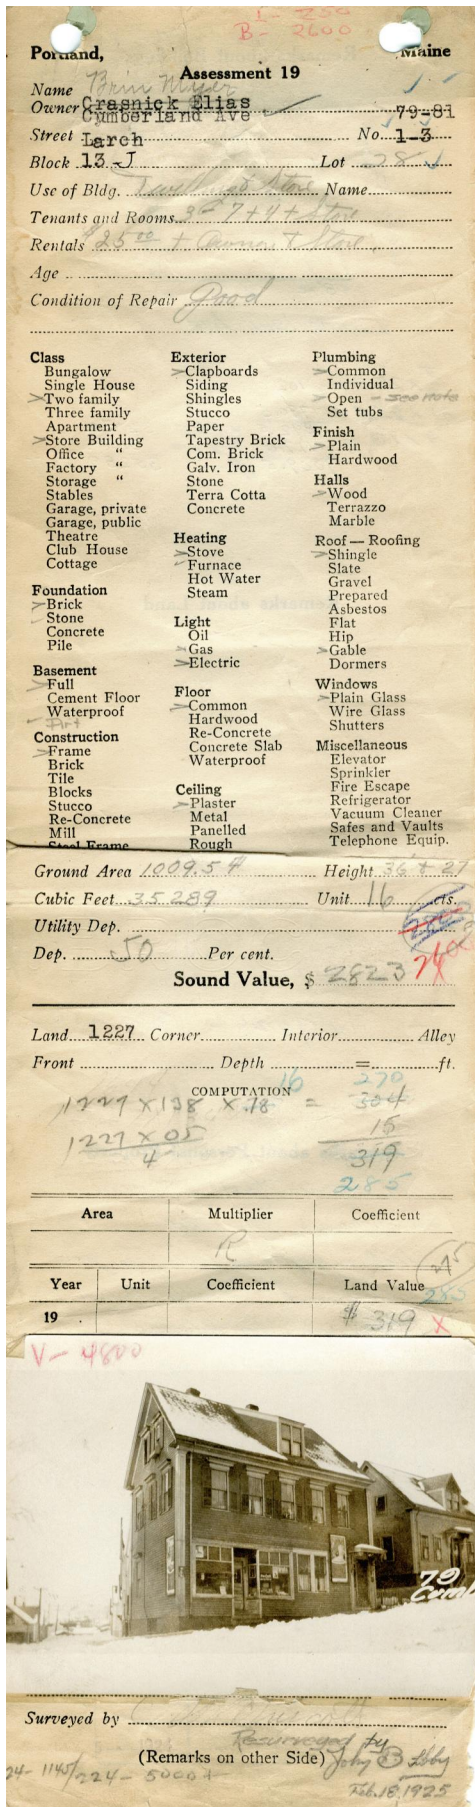 L - 250
B - 2600
Portland, Maine
Assessment 19
Name Brin Meyer
Owner Crasnick Elias
Cumberland Ave 79-81
Street Larch No. 1-3
Block 13-J Lot 28
Use of Bldg. Dwelling & Store Name
Tenants and Rooms 3 7 + 4 + Store
Rentals $25.00 + Owner + Store
Age
Condition of Repair Good
Class
Bungalow
Single House
Two family
Three family
Apartment
Store Building
Office "
Factory "
Storage "
Stables
Garage, private
Garage, public
Theatre
Club House
Cottage
Foundation
Brick
Stone
Concrete
Pile
Basement
Full
Cement Floor
Waterproof
Part
Construction
Frame
Brick
Tile
Blocks
Stucco
Re-Concrete
Mill
Steel Frame
Exterior
Clapboards
Siding
Shingles
Stucco
Paper
Tapestry Brick
Com. Brick
Galv. Iron
Stone
Terra Cotta
Concrete
Heating
Stove
Furnace
Hot Water
Steam
Light
Oil
Gas
Electric
Floor
Common
Hardwood
Re-Concrete
Concrete Slab
Waterproof
Ceiling
Plaster
Metal
Panelled
Rough
Plumbing
Common
Individual
Open - see note
Set tubs
Finish
Plain
Hardwood
Halls
Wood
Terrazzo
Marble
Roof — Roofing
Shingle
Slate
Gravel
Prepared
Asbestos
Flat
Hip
Gable
Dormers
Windows
Plain Glass
Wire Glass
Shutters
Miscellaneous
Elevator
Sprinkler
Fire Escape
Refrigerator
Vacuum Cleaner
Safes and Vaults
Telephone Equip.
Ground Area 1009.5 Height 36 + 27
Cubic Feet 35289 Unit 16 cts.
Utility Dep.
Dep. 50 Per cent.
Sound Value, $ 2823
Land 1227 Corner Interior Alley
Front Depth = ft.
COMPUTATION
16 270
1227 X 138 X .18 = 304
1227 X 05 15
4 319
285
Area Multiplier Coefficient
R
275
Year Unit Coefficient Land Value
285
19 . $ 319 X
V - 4800
79
Cumb
Surveyed by
Resurveyed by
(Remarks on other Side) John B Libby
24- 1145/224- 5000+
Feb. 18, 1925